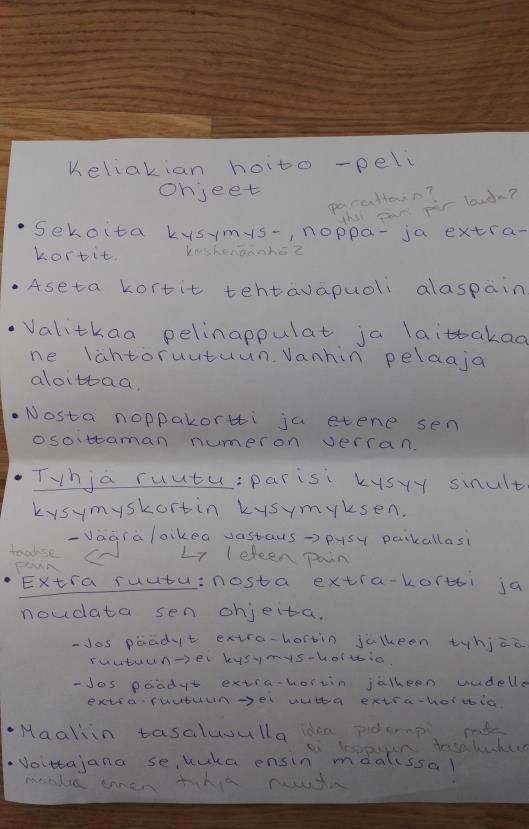 Keliakian hoito -peli
Ohjeet
parittain?
yksi pari per lauta?
• Sekoita kysymys-, noppa- ja extra-
kortit.
keskenäänkö?
• Aseta kortit tehtäväpuoli alaspäin.
• Valitkaa pelinappulat ja laittakaa
ne lähtöruutuun. Vanhin pelaaja
aloittaa.
• Nosta noppakortti ja etene sen
osoittaman numeron verran.
• Tyhjä ruutu: parisi kysyy sinult
kysymyskortin kysymyksen.
- Väärä/oikea vastaus → pysy paikallasi
taakse
päin
1 eteen päin
• Extra ruutu: nosta extra-kortti ja
noudata sen ohjeita.
- Jos päädyt extra-kortin jälkeen tyhjää
ruutuun → ei kysymys-korttia.
- Jos päädyt extra-kortin jälkeen uudelle
extra-ruutuun → ei uutta extra-korttia.
• Maaliin tasaluvulla
idea pidempi rata
ei loppuun tasalukua
• Voittajana se, kuka ensin maalissa!
ennen tyhjä ruutu